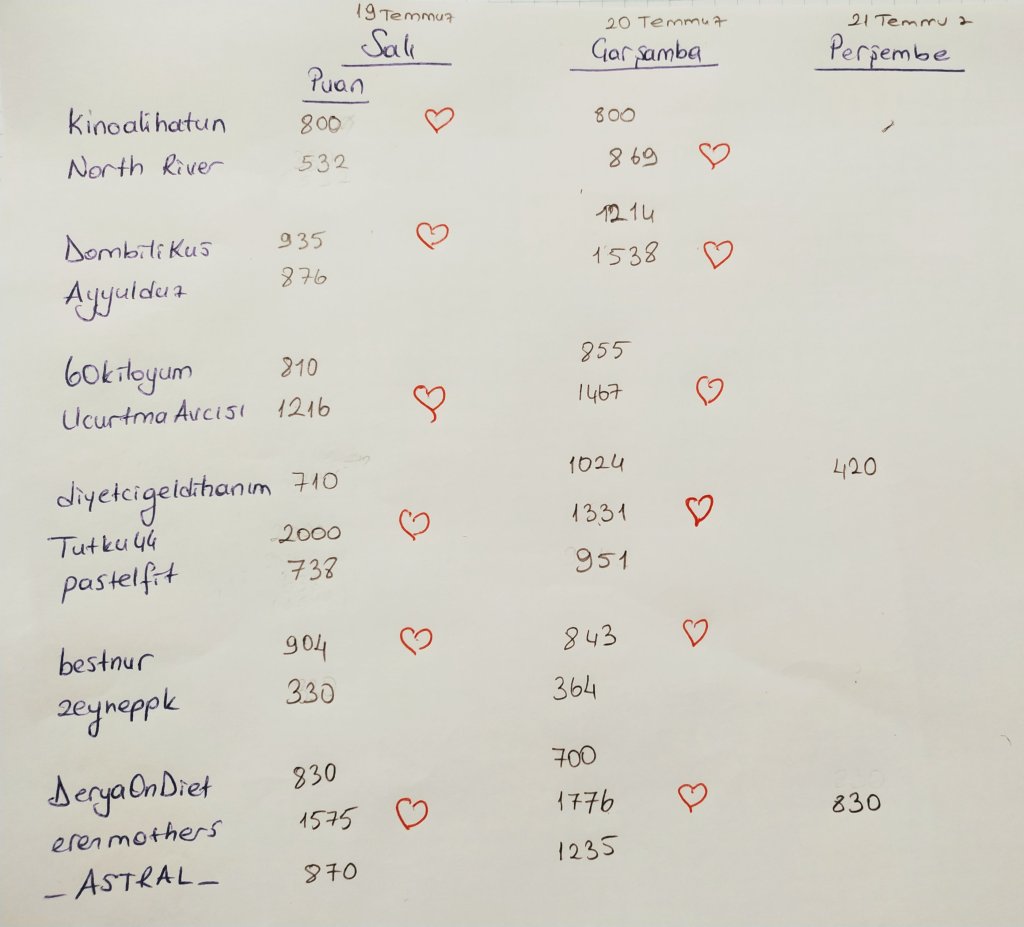 19 Temmuz 20 Temmuz 21 Temmuz
Salı Çarşamba Perşembe
Puan
Kinoalihatun 800 800
North River 532 869
Dombili Kuş 935 1214
Ayyulduz 876 1538
60kiloyum 810 855
Ucurtma Avcisi 1216 1467
diyetcigeldihanım 710 1024 420
Tutku44 2000 1331
pastelfit 738 951
bestnur 904 843
zeyneppk 330 364
DeryaOnDiet 830 700
erenmothers 1575 1776 830
_ASTRAL_ 870 1235